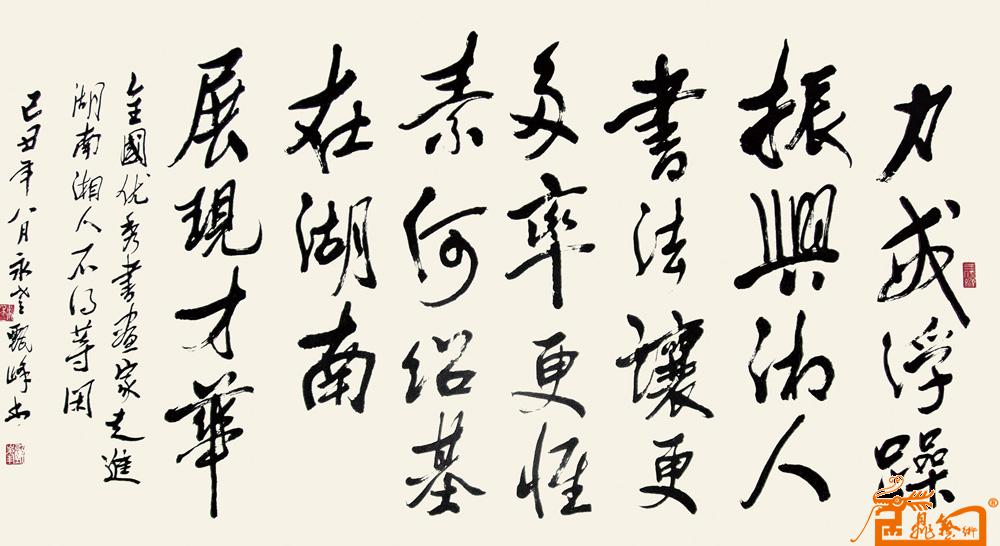 力戒浮躁
振興湘人
書法讓更
多率更懷
素何绍基
在湖南
展現才華
全國优秀書画家走進
湖南湘人不得等闲
己丑年八月永 甄峰書